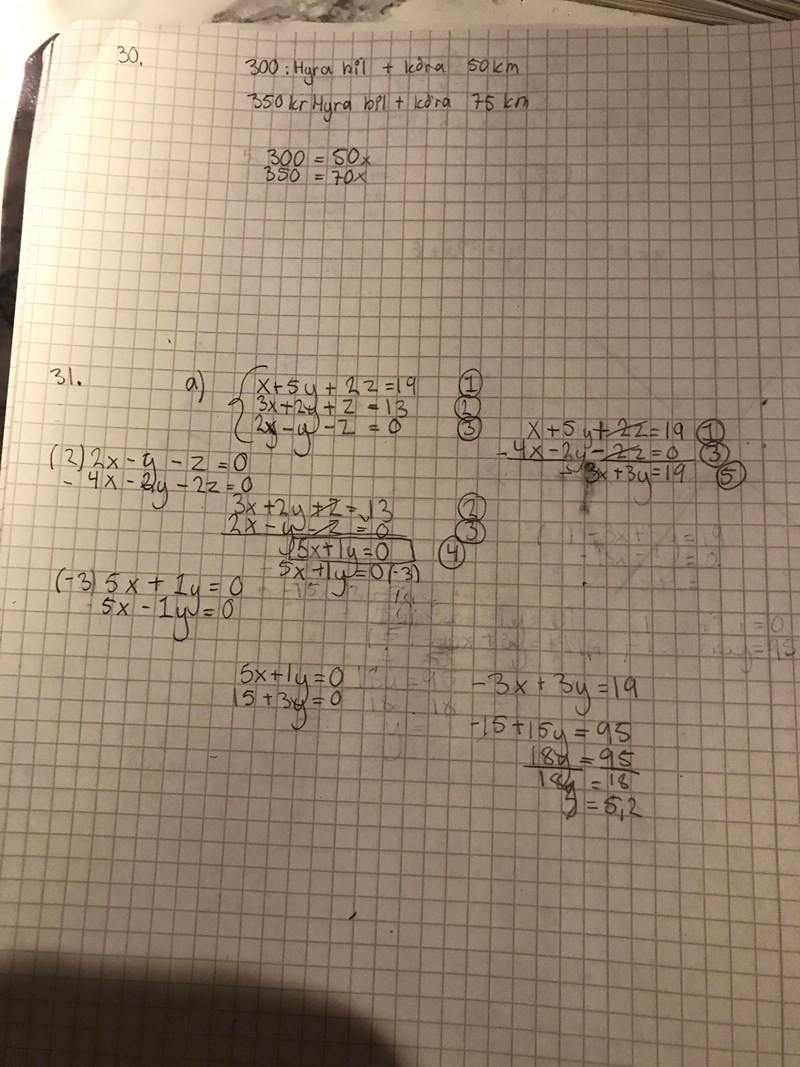 30.
300: Hyra bil + köra 50 km
350 kr Hyra bil + köra 75 km
300 = 50x
350 = 70x
31. a) x+5y+2z=19 ①
3x+2y+z=13 ②
2x-y-z=0 ③
x+5y+2z=19 ①
-4x-2y-2z=0 ③
-3x+3y=19 ⑤
(2) 2x-y-z=0
-4x-2y-2z=0
3x+2y+z=13 ②
2x-y-z=0 ③
5x+1y=0 ④
5x+1y=0(-3)
(-3) 5x+1y=0
5x-1y=0
5x+1y=0
15+3y=0
-3x+3y=19
-15+15y=95
18y=95
18y=18
y=5,2